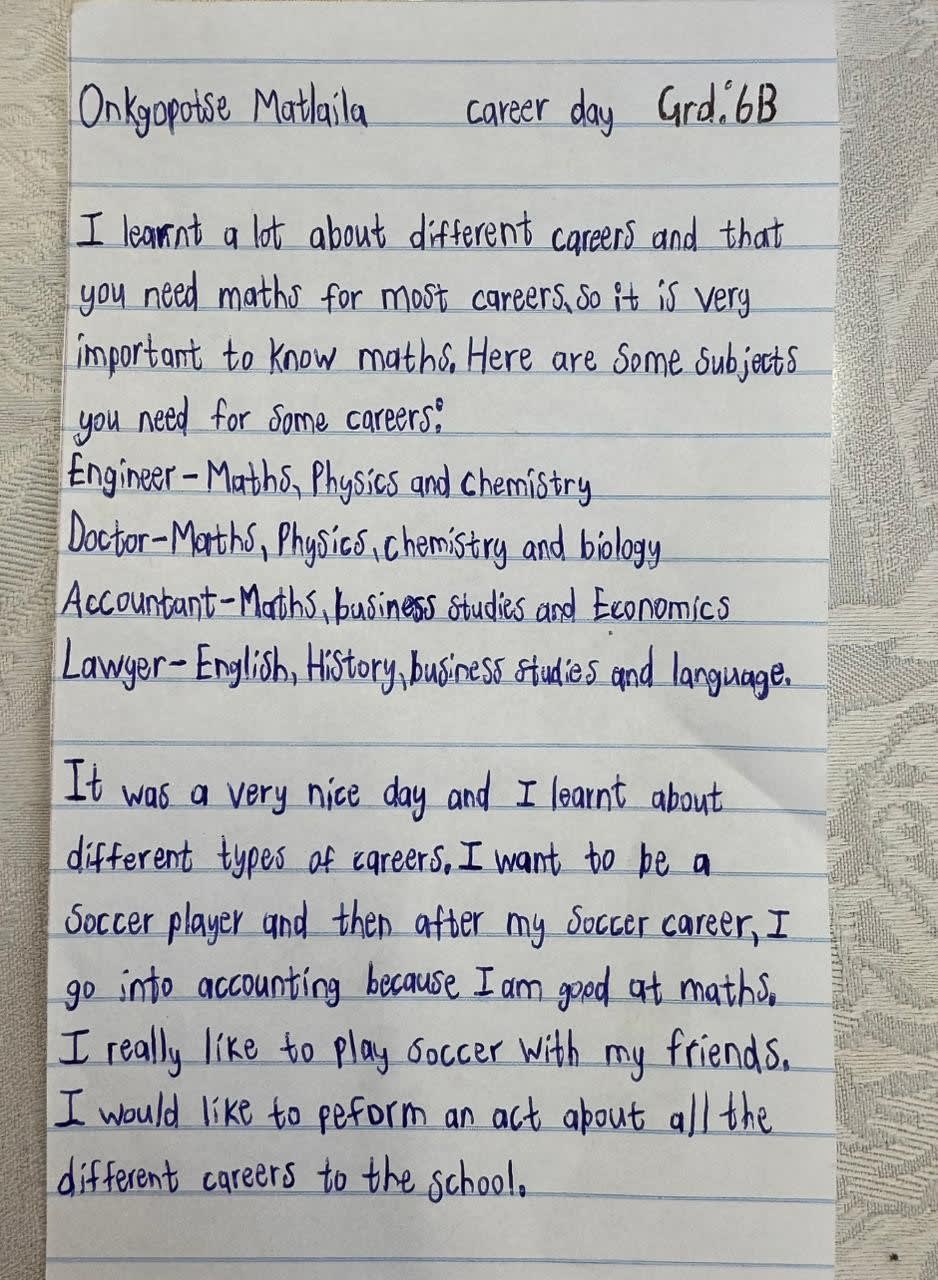 Onkgopotse Matlaila career day Grd:6B
I learnt a lot about different careers and that
you need maths for most careers, so it is very
important to know maths. Here are some subjects
you need for some careers:
Engineer - Maths, Physics and chemistry
Doctor - Maths, Physics, chemistry and biology
Accountant - Maths, business studies and Economics
Lawyer - English, History, business studies and language.
It was a very nice day and I learnt about
different types of careers. I want to be a
soccer player and then after my soccer career, I
go into accounting because I am good at maths.
I really like to play soccer with my friends.
I would like to peform an act about all the
different careers to the school.